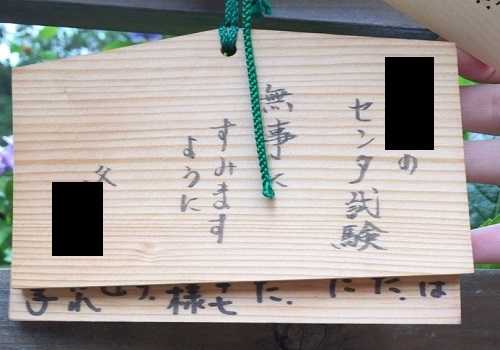 の
センタ試験
無事に
すみます
ように
父
は
だ
に
た、
様
れ